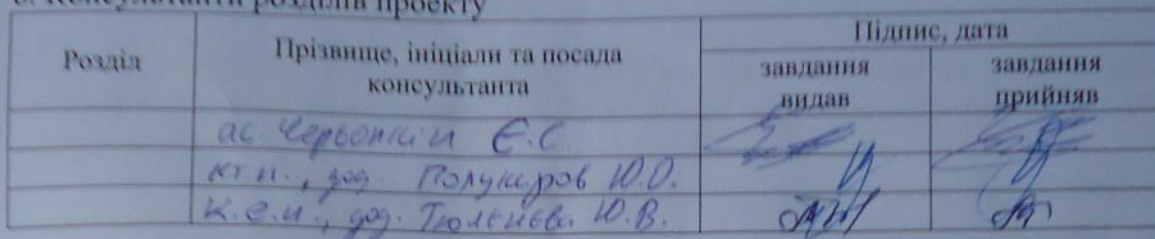 6. Консультанти розділів проекту
Розділ Прізвище, ініціали та посада консультанта Підпис, дата
завдання видав завдання прийняв
ас. Є.С.
к.т.н., доц. Ю.О.
к.е.н., доц. Тюленєва Ю.В.